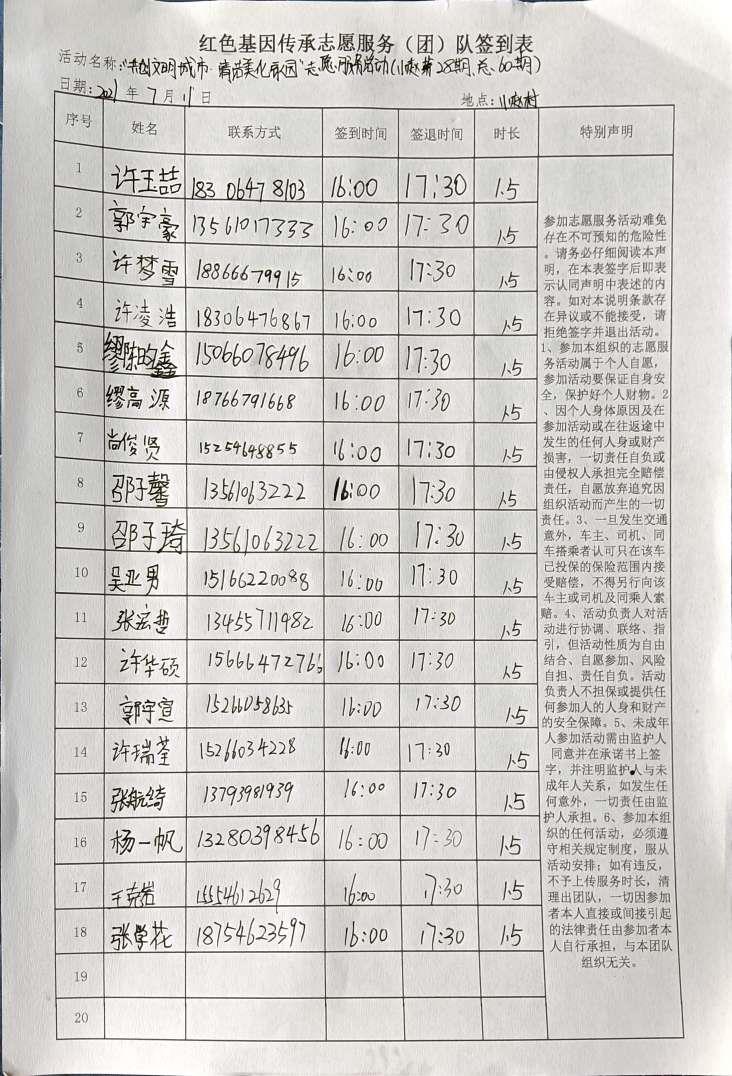 红色基因传承志愿服务（团）队签到表
活动名称:"共创文明城市·清洁美化家园"志愿服务活动(小赵第28期、总60期)
日期:2021年7月11日 地点:小赵村
序号 姓名 联系方式 签到时间 签退时间 时长 特别声明
1 许玉喆 18306478103 16:00 17:30 1.5
2 郭宇豪 13561017333 16:00 17:30 1.5
3 许梦雪 18866679915 16:00 17:30 1.5
4 许凌浩 18306476867 16:00 17:30 1.5
5 缪陈昀鑫 15066078496 16:00 17:30 1.5
6 缪高源 18766791668 16:00 17:30 1.5
7 尚俊贤 15254648855 16:00 17:30 1.5
8 邵子馨 13561063222 16:00 17:30 1.5
9 邵子琦 13561063222 16:00 17:30 1.5
10 吴亚男 15166220088 16:00 17:30 1.5
11 张宏哲 13455711982 16:00 17:30 1.5
12 许华硕 16:00 17:30 1.5
13 郭宇宣 15266058635 16:00 17:30 1.5
14 许瑞荃 15266034228 16:00 17:30 1.5
15 张航绮 13793981939 16:00 17:30 1.5
16 杨一帆 13280398456 16:00 17:30 1.5
17 王克岩 15554612629 16:00 17:30 1.5
18 张学花 18754623597 16:00 17:30 1.5
19
20
参加志愿服务活动难免
存在不可预知的危险性
。请务必仔细阅读本声
明，在本表签字后即表
示认同声明中表述的内
容。如对本说明条款存
在异议或不能接受，请
拒绝签字并退出活动。
1、参加本组织的志愿服
务活动属于个人自愿，
参加活动要保证自身安
全，保护好个人财物。2
、因个人身体原因及在
参加活动或在往返途中
发生的任何人身或财产
损害，一切责任自负或
由侵权人承担完全赔偿
责任，自愿放弃追究因
组织活动而产生的一切
责任。3、一旦发生交通
意外，车主、司机、同
车搭乘者认可只在该车
已投保的保险范围内接
受赔偿，不得另行向该
车主或司机及同乘人索
赔。4、活动负责人对活
动进行协调、联络、指
引，但活动性质为自由
结合、自愿参加、风险
自担、责任自负。活动
负责人不担保或提供任
何参加人的人身和财产
的安全保障。5、未成年
人参加活动需由监护人
同意并在承诺书上签
字，并注明监护人与未
成年人关系，如发生任
何意外，一切责任由监
护人承担。6、参加本组
织的任何活动，必须遵
守相关规定制度，服从
活动安排；如有违反，
不予上传服务时长，清
理出团队，一切因参加
者本人直接或间接引起
的法律责任由参加者本
人自行承担，与本团队
组织无关。